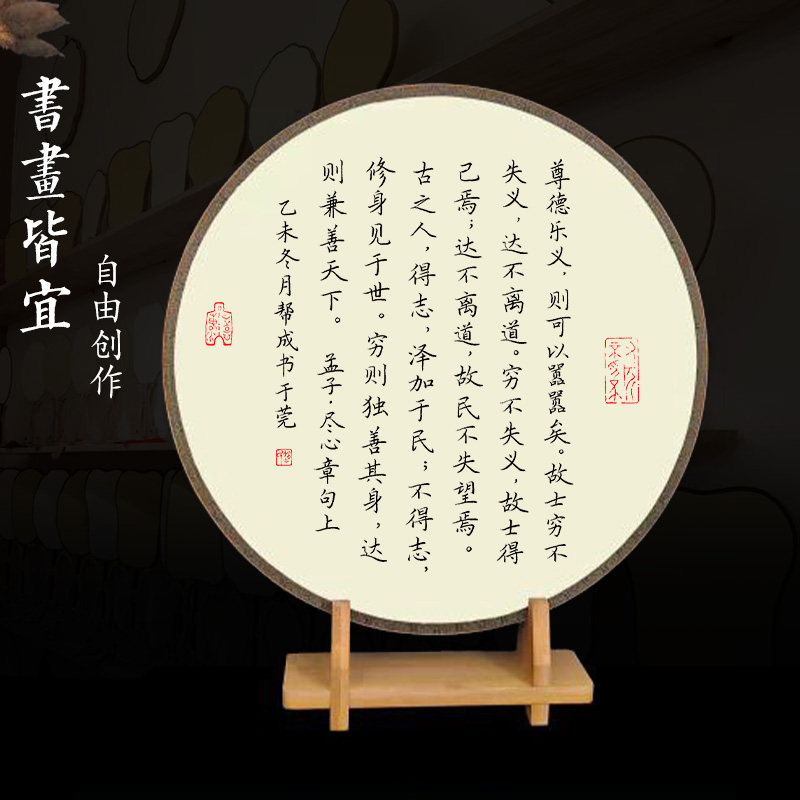 書畫皆宜
自由创作
尊德乐义，则可以嚣嚣矣。故士穷不
失义，达不离道。穷不失义，故士得
己焉；达不离道，故民不失望焉。
古之人，得志，泽加于民；不得志，
修身见于世。穷则独善其身，达
则兼善天下。 孟子·尽心章句上
乙未冬月帮成书于莞